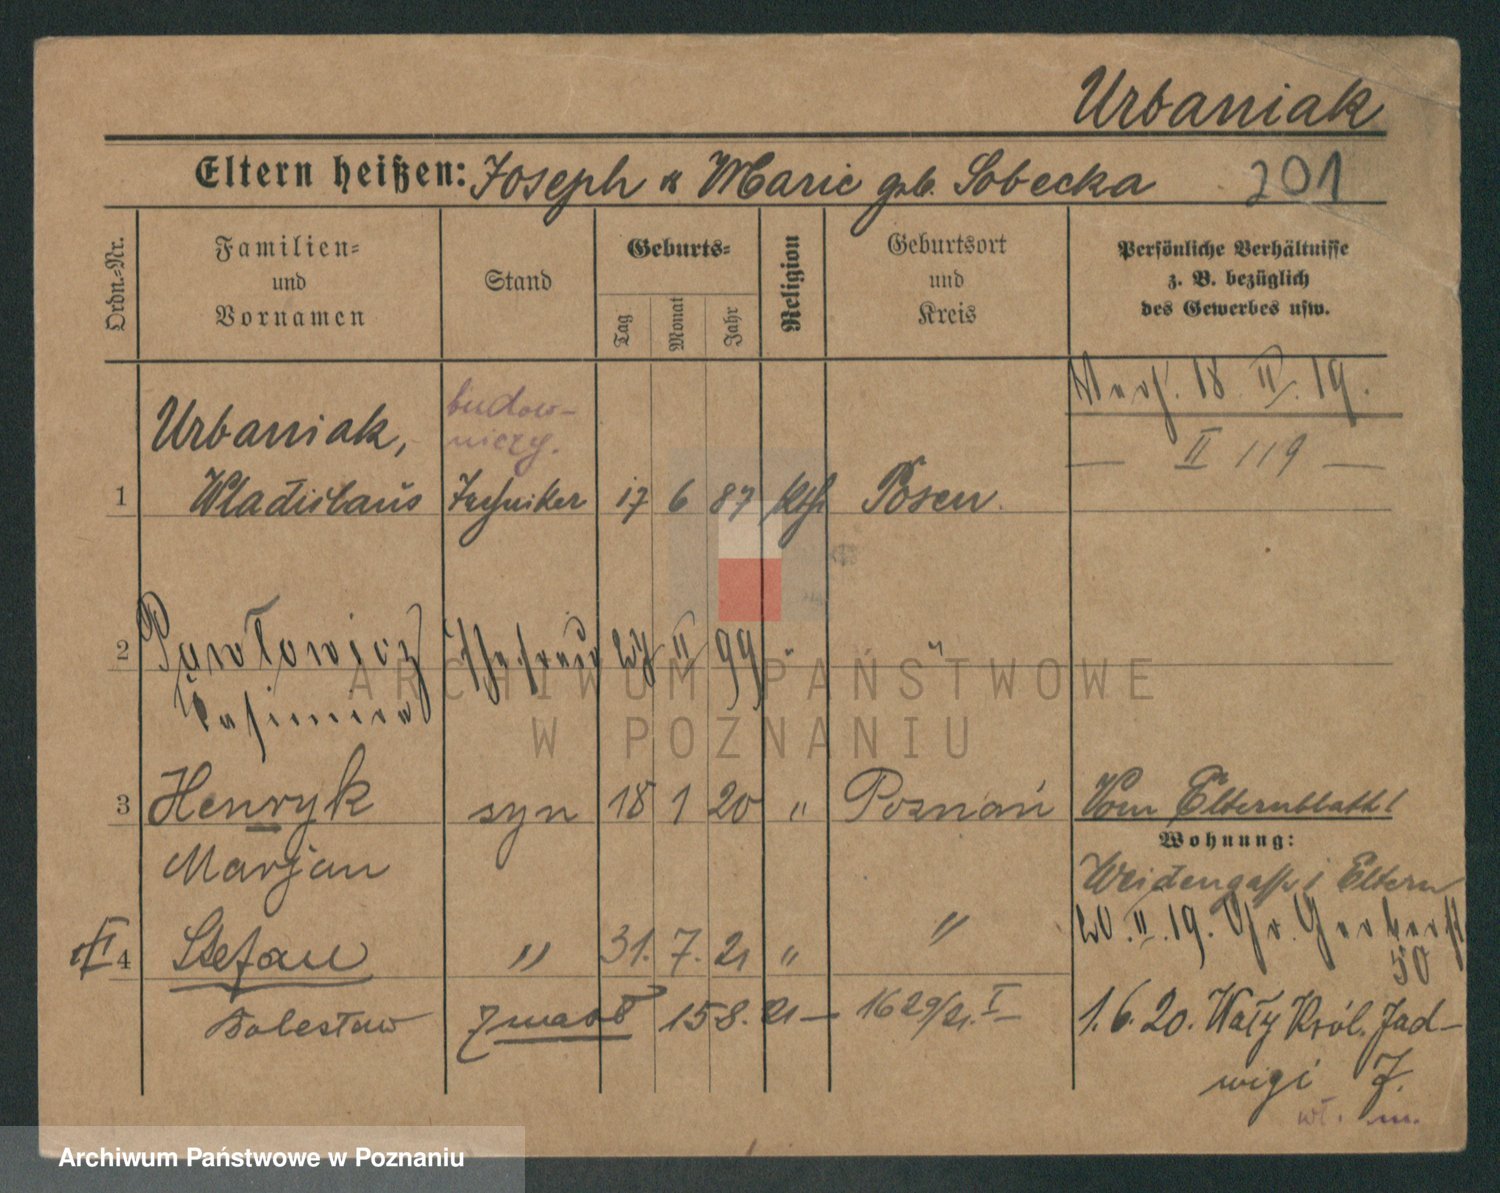 Urbaniak
Eltern heißen: Joseph u Marie geb. Sobecka 201
Ordn.-Nr.
Familien- und Vornamen
Stand
Geburts-
Tag Monat Jahr
Religion
Geburtsort und Kreis
Persönliche Verhältnisse
z. B. bezüglich
des Gewerbes usw.
18 II. 19.
II 119
budow-
niczy.
Urbaniak,
1 Wladislaus Techniker 17 6 87 kth Posen
2 Pawłowicz Ehefrau II 99 " "
Kasimira
3 Henryk syn 18 1 20 " Poznań Vom Elternblatt!
Marjan
Wohnung:
Weidengasse Eltern
20. II. 19. Gr. Gerberstr
50
4 Stefan " 31. 7. 21 " "
Bolesław zmarł 15 8. 21 – 1629/21. I –
1. 6. 20. Wały Król. Jad-
wigi 7.
wł. m.
ARCHIWUM PAŃSTWOWE
W POZNANIU
Archiwum Państwowe w Poznaniu